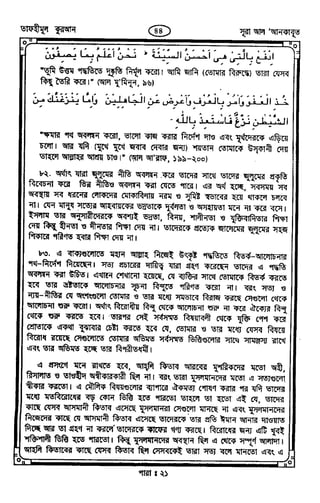 তাফহীমুল কুরআন ৪৪ সূরা আল 'আনকাবূত
ادْفَعْ بِالَّتِي هِيَ أَحْسَنُ السَّيِّئَةَ ۚ نَحْنُ أَعْلَمُ بِمَا يَصِفُونَ
"তুমি উত্তম পদ্ধতিতে দুষ্কৃতি নির্মূল করো। আমি জানি (তোমার বিরুদ্ধে) তারা যেসব
কিছু তৈরি করে।" (আল মু'মিনূন, ৯৬)
خُذِ الْعَفْوَ وَأْمُرْ بِالْعُرْفِ وَأَعْرِضْ عَنِ الْجَاهِلِينَ وَإِمَّا يَنْزَغَنَّكَ مِنَ
الشَّيْطَنِ نَزْغٌ فَاسْتَعِذْ بِاللَّهِ -
"ক্ষমার পথ অবলম্বন করো, ভালো কাজ করার নির্দেশ দাও এবং মূর্খদেরকে এড়িয়ে
চলো। আর যদি (মুখে মুখে জবাব দেবার জন্য) শয়তান তোমাকে উস্কানী দেয়
তাহলে আল্লাহর আশ্রয় চাও।" (আল আ'রাফ, ১৯৯-২০০)
৮২. অর্থাৎ যারা জুলুমের নীতি অবলম্বন করে তাদের সাথে তাদের জুলুমের প্রকৃতি
বিবেচনা করে ভিন্ন নীতিও অবলম্বন করা যেতে পারে। এর অর্থ হচ্ছে, সবসময় সব
অবস্থায় সব ধরনের লোকদের মোকাবিলায় নরম ও সুমিষ্ট স্বভাবের হয়ে থাকলে চলবে
না। যেন মানুষ সত্যের আহবায়কের ভদ্রতাকে দুর্বলতা ও অসহায়তা মনে না করে বসে।
ইসলাম তার অনুসারীদেরকে অবশ্যই ভদ্রতা, বিনয়, শালীনতা ও যুক্তিবাদিতার শিক্ষা
দেয় কিন্তু হীনতা ও দীনতার শিক্ষা দেয় না। তাদেরকে প্রত্যেক জালেমের জুলুমের সহজ
শিকারে পরিণত হবার শিক্ষা দেয় না।
৮৩. এ বাক্যগুলোতে মহান আল্লাহ নিজেই উৎকৃষ্ট পদ্ধতিতে বিতর্ক-আলোচনার
পথ-নির্দেশ দিয়েছেন। সত্য প্রচারের দায়িত্ব যারা গ্রহণ করেছেন তাদের এ পদ্ধতি
অবলম্বন করা উচিত। এখানে শেখানো হয়েছে, যে ব্যক্তির সাথে তোমাকে বিতর্ক করতে
হবে তার ভ্রষ্টতাকে আলোচনার সূচনা বিন্দুতে পরিণত করো না। বরং সত্য ও
ন্যায়-নীতির যে অংশগুলো তোমার ও তার মধ্যে সমভাবে বিরাজ করছে সেগুলো থেকে
আলোচনা শুরু করো। অর্থাৎ বিরোধীয় বিন্দু থেকে আলোচনা শুরু না করে ঐক্যের বিন্দু
থেকে শুরু করতে হবে। তারপর সেই সর্বসম্মত বিষয়াবলী থেকে যুক্তি পেশ করে
শ্রোতাকে একথা বুঝাবার চেষ্টা করতে হবে যে, তোমার ও তার মধ্যে যেসব বিষয়ে
বিরোধ রয়েছে সেগুলোতে তোমার অভিমত সর্বসম্মত ভিত্তিগুলোর সাথে সামঞ্জস্য রাখে
এবং তার অভিমত হচ্ছে তার বিপরীতধর্মী।
এ প্রসংগে মনে রাখতে হবে, আহলি কিতাব আরবের মুশরিকদের মতো অহী,
রিসালাত ও তাওহীদ অস্বীকারকারী ছিল না। বরং তারা মুসলমানদের মতো এ সত্যগুলো
স্বীকার করতো। এ মৌলিক বিষয়গুলোর ব্যাপারে ঐকমত্য পোষণ করার পর যদি তাদের
মধ্যে মতবিরোধের বড় কোন ভিত্তি হতে পারতো তাহলে তা হতো এই যে, তাদের
কাছে যেসব আসমানী কিতাব এসেছে মুসলমানরা সেগুলো মানছে না এবং মুসলমানদের
নিজেদের কাছে যে আসমানী কিতাব এসেছে তাদেরকে তার প্রতি ঈমান আনার দাওয়াত
দিচ্ছে আর তা গ্রহণ না করলে তাদেরকে কাফের গণ্য করছে। বিরোধের জন্য এটি খুবই
শক্তিশালী ভিত্তি হতে পারতো। কিন্তু মুসলমানদের অবস্থান ছিল এ থেকে সম্পূর্ণ আলাদা।
আহলি কিতাবের কাছে যেসব কিতাব ছিল সেসবকেই তারা সত্য বলে মানতো এবং এ
পারা : ২১